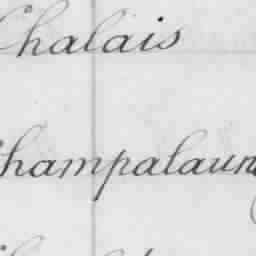 Chalais
Champalaun